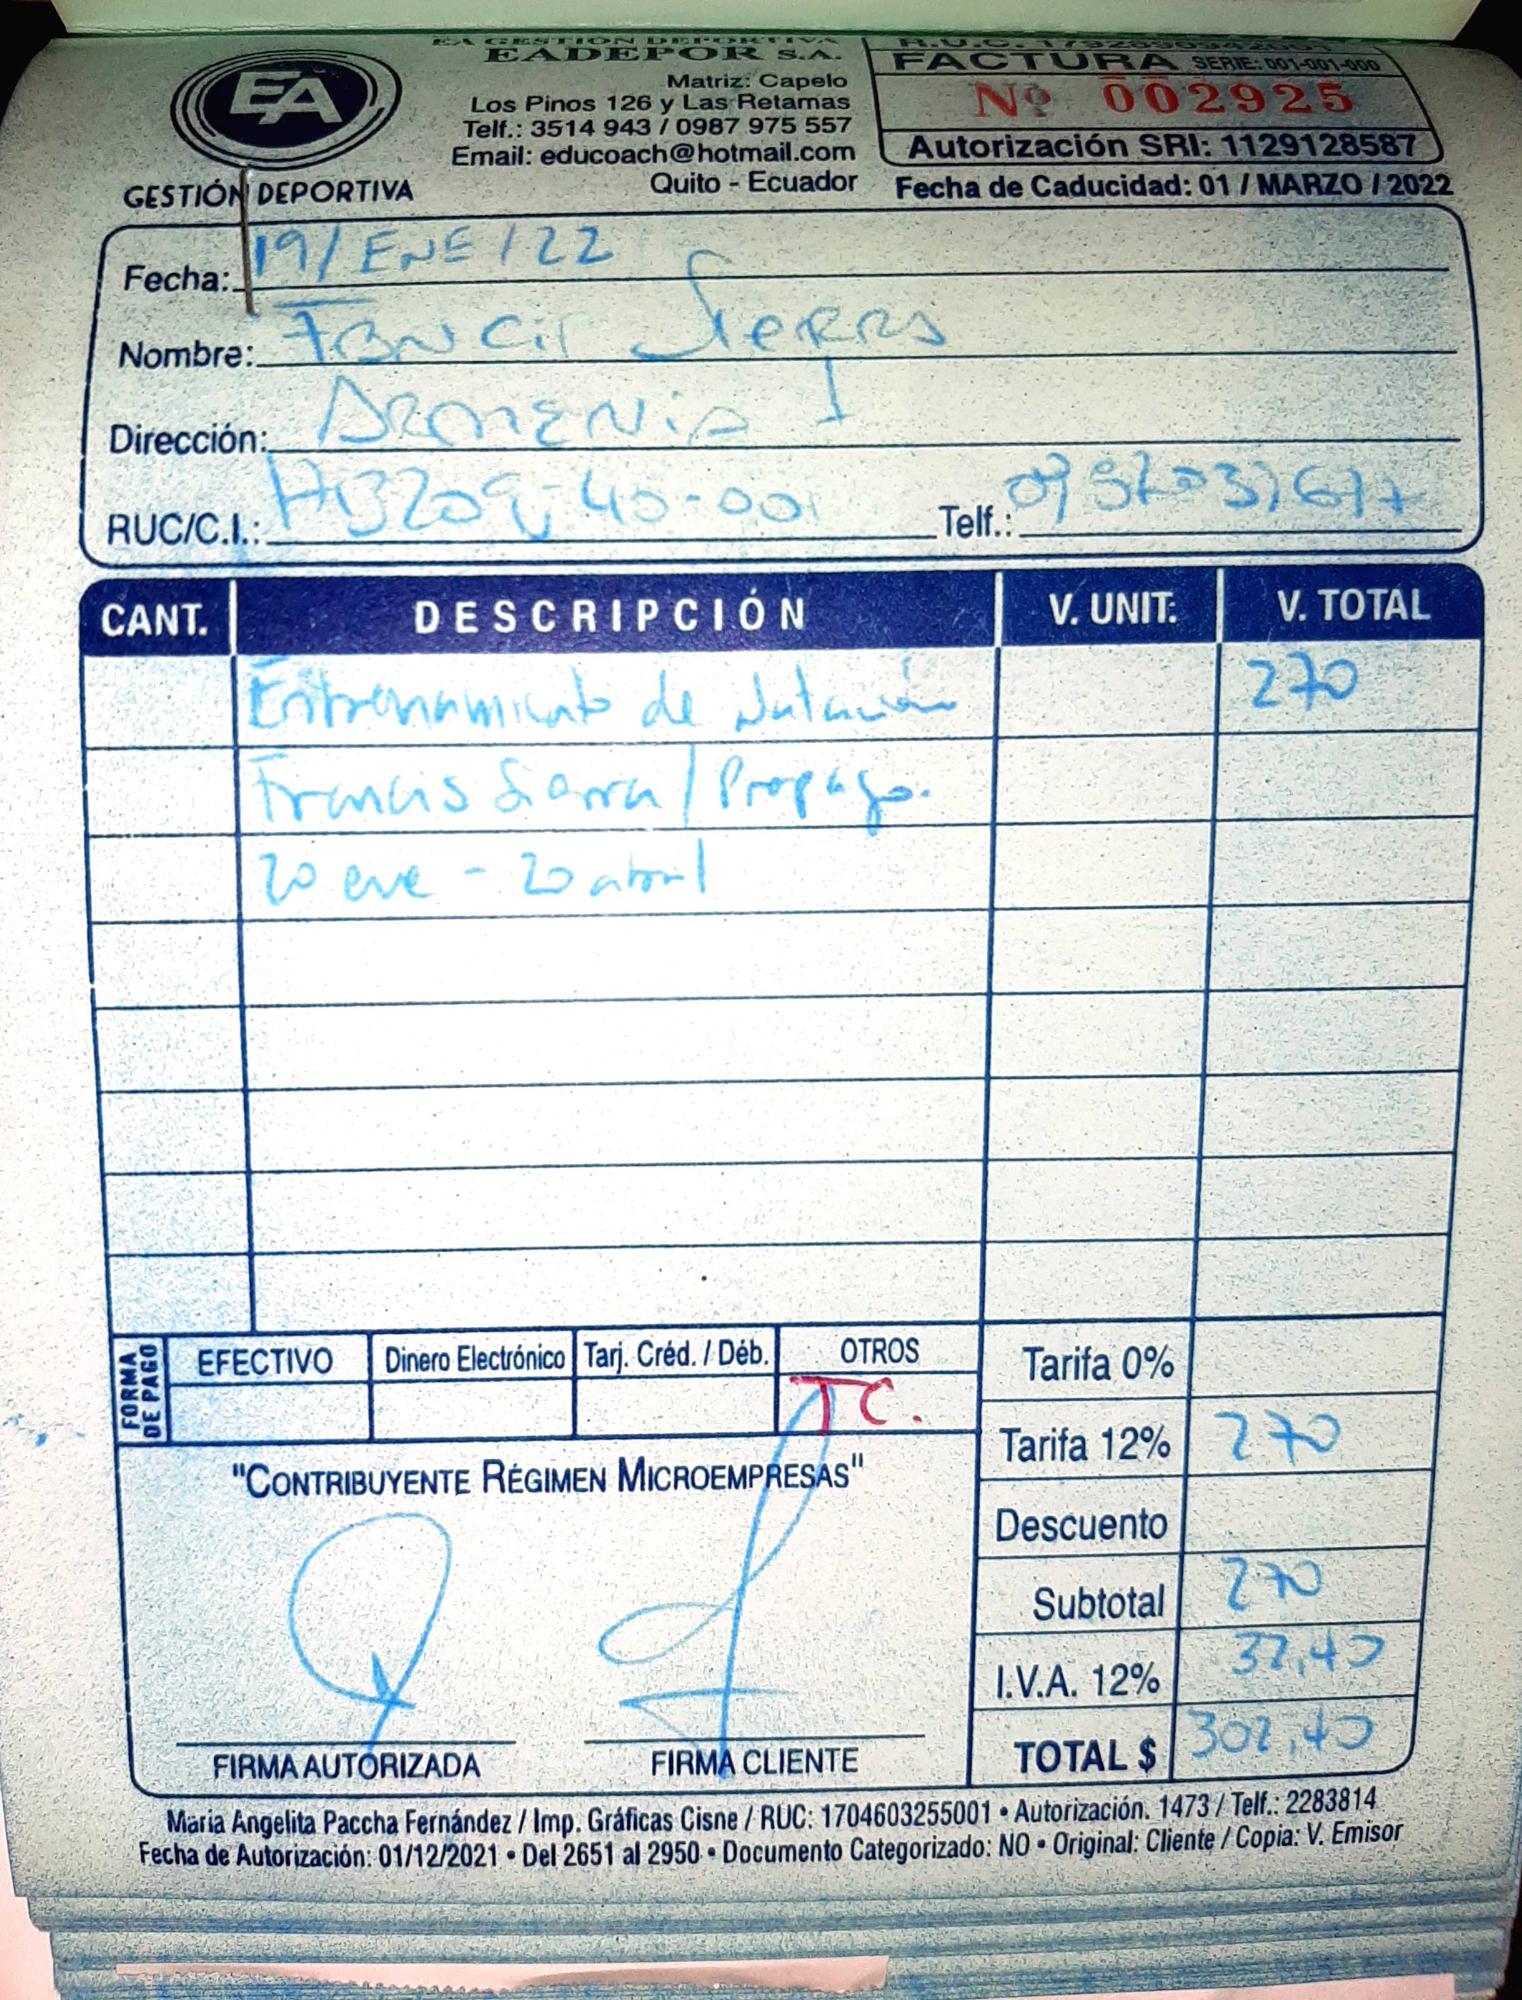 EA GESTIÓN DEPORTIVA
EADEPOR S.A.
Matriz: Capelo
Los Pinos 126 y Las Retamas
Telf.: 3514 943 / 0987 975 557
Email: educoach@hotmail.com
Quito - Ecuador
EA
GESTIÓN DEPORTIVA
R.U.C.
FACTURA SERIE: 001-001-000
Nº 002925
Autorización SRI: 1129128587
Fecha de Caducidad: 01 / MARZO / 2022
Fecha: 19/ENE/22
Nombre: Francis Sierra
Dirección: ARMENIA 1
RUC/C.I.: Telf.:
CANT. DESCRIPCIÓN V. UNIT. V. TOTAL
Entrenamiento de Natación 270
Francis Sierra / Prepago.
20 ene - 20 abril
FORMA DE PAGO
EFECTIVO Dinero Electrónico Tarj. Créd. / Déb. OTROS
TC.
Tarifa 0%
Tarifa 12% 270
Descuento
Subtotal 270
I.V.A. 12% 32,40
TOTAL $ 302,40
"CONTRIBUYENTE RÉGIMEN MICROEMPRESAS"
FIRMA AUTORIZADA FIRMA CLIENTE
Maria Angelita Paccha Fernández / Imp. Gráficas Cisne / RUC: 1704603255001 • Autorización. 1473 / Telf.: 2283814
Fecha de Autorización: 01/12/2021 • Del 2651 al 2950 • Documento Categorizado: NO • Original: Cliente / Copia: V. Emisor